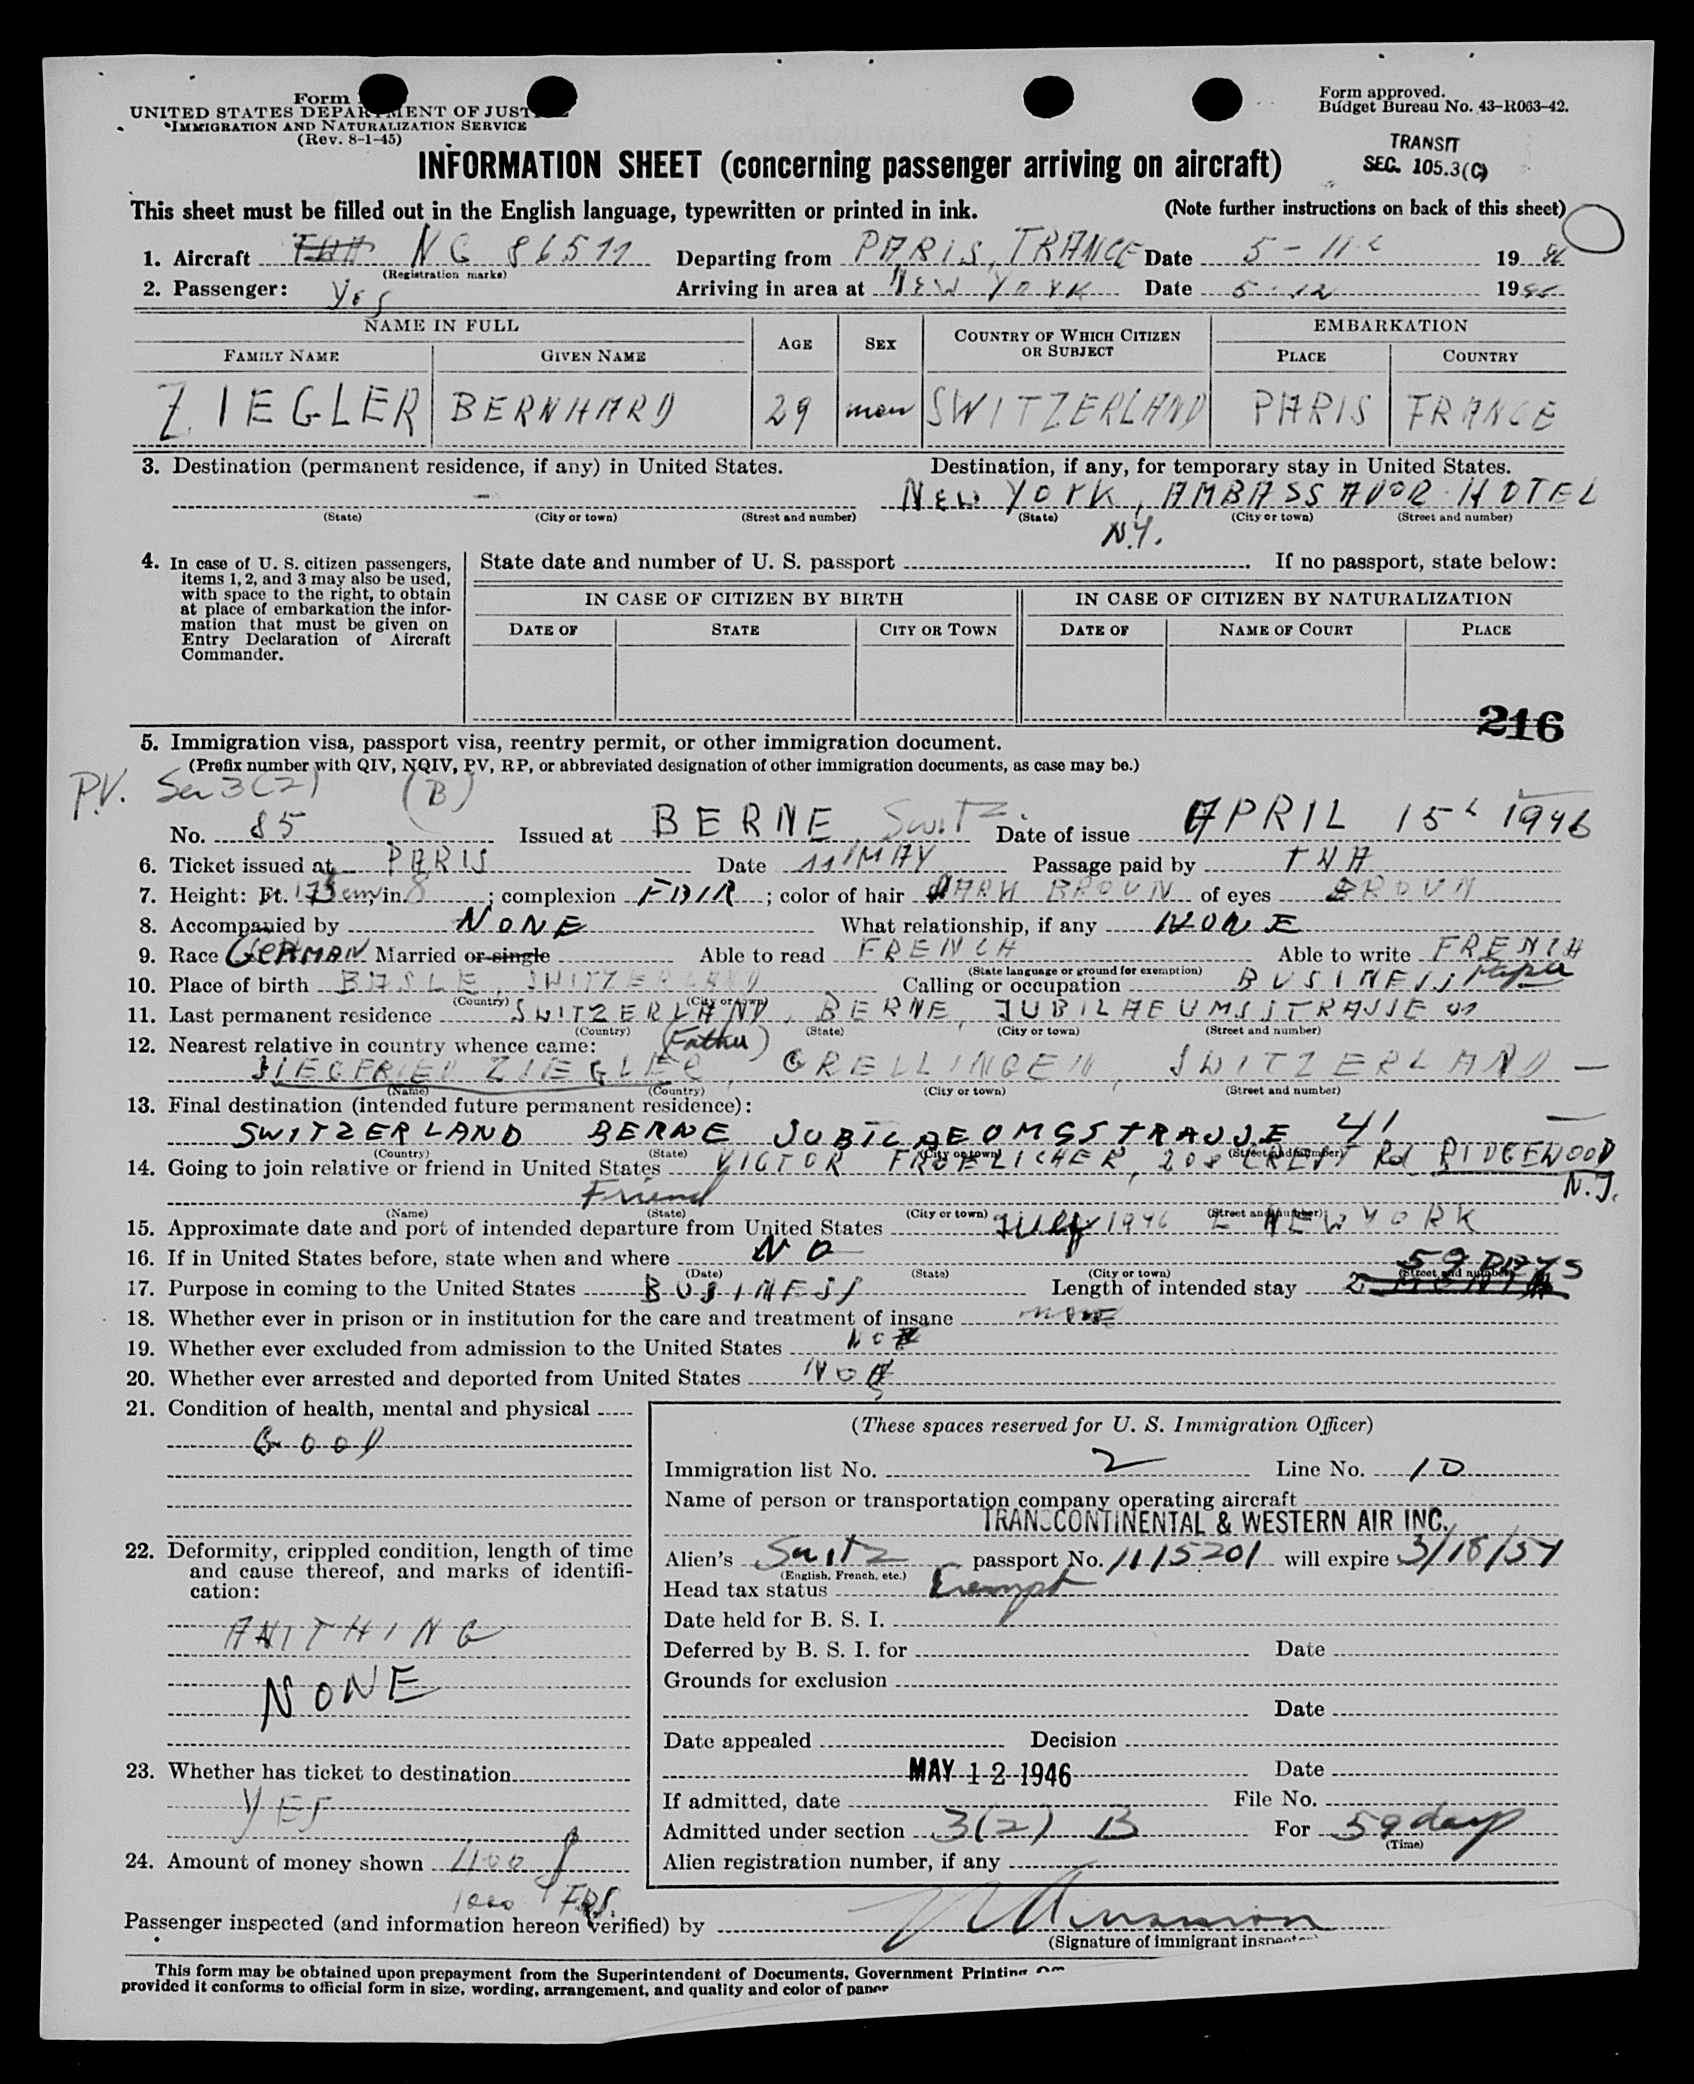 Form
UNITED STATES DEPARTMENT OF JUST
IMMIGRATION AND NATURALIZATION SERVICE
(Rev. 8-1-45)
Form approved.
Budget Bureau No. 43-R063-42.
TRANSIT
SEC. 105.3(C)
INFORMATION SHEET (concerning passenger arriving on aircraft)
This sheet must be filled out in the English language, typewritten or printed in ink. (Note further instructions on back of this sheet)
1. Aircraft NC 86511 Departing from PARIS, FRANCE Date 5-11 1946
(Registration marks)
2. Passenger: Yes Arriving in area at NEW YORK Date 5-12 1946
NAME IN FULL AGE SEX COUNTRY OF WHICH CITIZEN OR SUBJECT EMBARKATION
FAMILY NAME GIVEN NAME PLACE COUNTRY
ZIEGLER BERNHARD 29 man SWITZERLAND PARIS FRANCE
3. Destination (permanent residence, if any) in United States. Destination, if any, for temporary stay in United States.
— NEW YORK, AMBASSADOR HOTEL
(State) (City or town) (Street and number) (State) (City or town) (Street and number)
N.Y.
4. In case of U. S. citizen passengers, items 1, 2, and 3 may also be used, with space to the right, to obtain at place of embarkation the information that must be given on Entry Declaration of Aircraft Commander.
State date and number of U. S. passport If no passport, state below:
IN CASE OF CITIZEN BY BIRTH IN CASE OF CITIZEN BY NATURALIZATION
DATE OF STATE CITY OR TOWN DATE OF NAME OF COURT PLACE
216
5. Immigration visa, passport visa, reentry permit, or other immigration document.
(Prefix number with QIV, NQIV, PV, RP, or abbreviated designation of other immigration documents, as case may be.)
P.V. Sec 3(2) (B)
No. 85 Issued at BERNE Switz. Date of issue APRIL 15 1946
6. Ticket issued at PARIS Date 11 MAY Passage paid by TWA
7. Height: Ft. 5 in. 8; complexion FAIR; color of hair DARK BROUN of eyes BROUN
8. Accompanied by NONE What relationship, if any NONE
9. Race GERMAN Married or single Able to read FRENCH Able to write FRENCH
(State language or ground for exemption)
10. Place of birth BASLE, SWITZERLAND Calling or occupation BUSINESS
(Country) (City or town)
11. Last permanent residence SWITZERLAND, BERNE, JUBILAEUMSSTRASSE 41
(Country) (State) (City or town) (Street and number)
12. Nearest relative in country whence came: (Father)
SIEGFRIED ZIEGLER, GRELLINGEN, SWITZERLAND —
(Name) (Country) (City or town) (Street and number)
13. Final destination (intended future permanent residence):
SWITZERLAND BERNE JUBILAEOMSSTRASSE 41
(Country) (State) (City or town) (Street and number)
14. Going to join relative or friend in United States VICTOR FROELICHER, 208 CREST Rd RIDGEWOOD
Friend N.J.
(Name) (State) (City or town) (Street and number)
15. Approximate date and port of intended departure from United States July 1946 NEW YORK
16. If in United States before, state when and where NO
(Date) (State) (City or town) (Street and number)
59 DAYS
17. Purpose in coming to the United States BUSINESS Length of intended stay 2 MONTH
18. Whether ever in prison or in institution for the care and treatment of insane NONE
19. Whether ever excluded from admission to the United States NO
20. Whether ever arrested and deported from United States NO
21. Condition of health, mental and physical
GOOD
22. Deformity, crippled condition, length of time and cause thereof, and marks of identification:
ANITHING
NONE
23. Whether has ticket to destination
YES
24. Amount of money shown 1100 $
1000 FRS.
(These spaces reserved for U. S. Immigration Officer)
Immigration list No. 2 Line No. 10
Name of person or transportation company operating aircraft
TRANSCONTINENTAL & WESTERN AIR INC.
Alien's Switz passport No. 1115201 will expire 3/18/51
(English, French, etc.)
Head tax status Exempt
Date held for B. S. I.
Deferred by B. S. I. for Date
Grounds for exclusion
Date
Date appealed Decision
MAY 12 1946 Date
If admitted, date File No.
Admitted under section 3(2) B For 59 days
(Time)
Alien registration number, if any
Passenger inspected (and information hereon verified) by
(Signature of immigrant
This form may be obtained upon prepayment from the Superintendent of Documents, Government Printing
provided it conforms to official form in size, wording, arrangement, and quality and color of paper